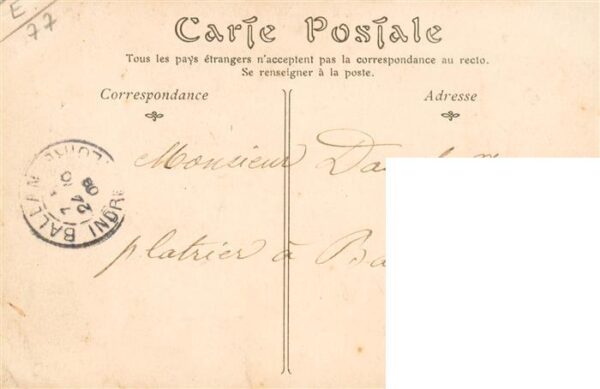 E
77
Carte Postale
Tous les pays étrangers n'acceptent pas la correspondance au recto.
Se renseigner à la poste.
Correspondance
Adresse
BALLAN INDRE
24
09
Monsieur
platrier à